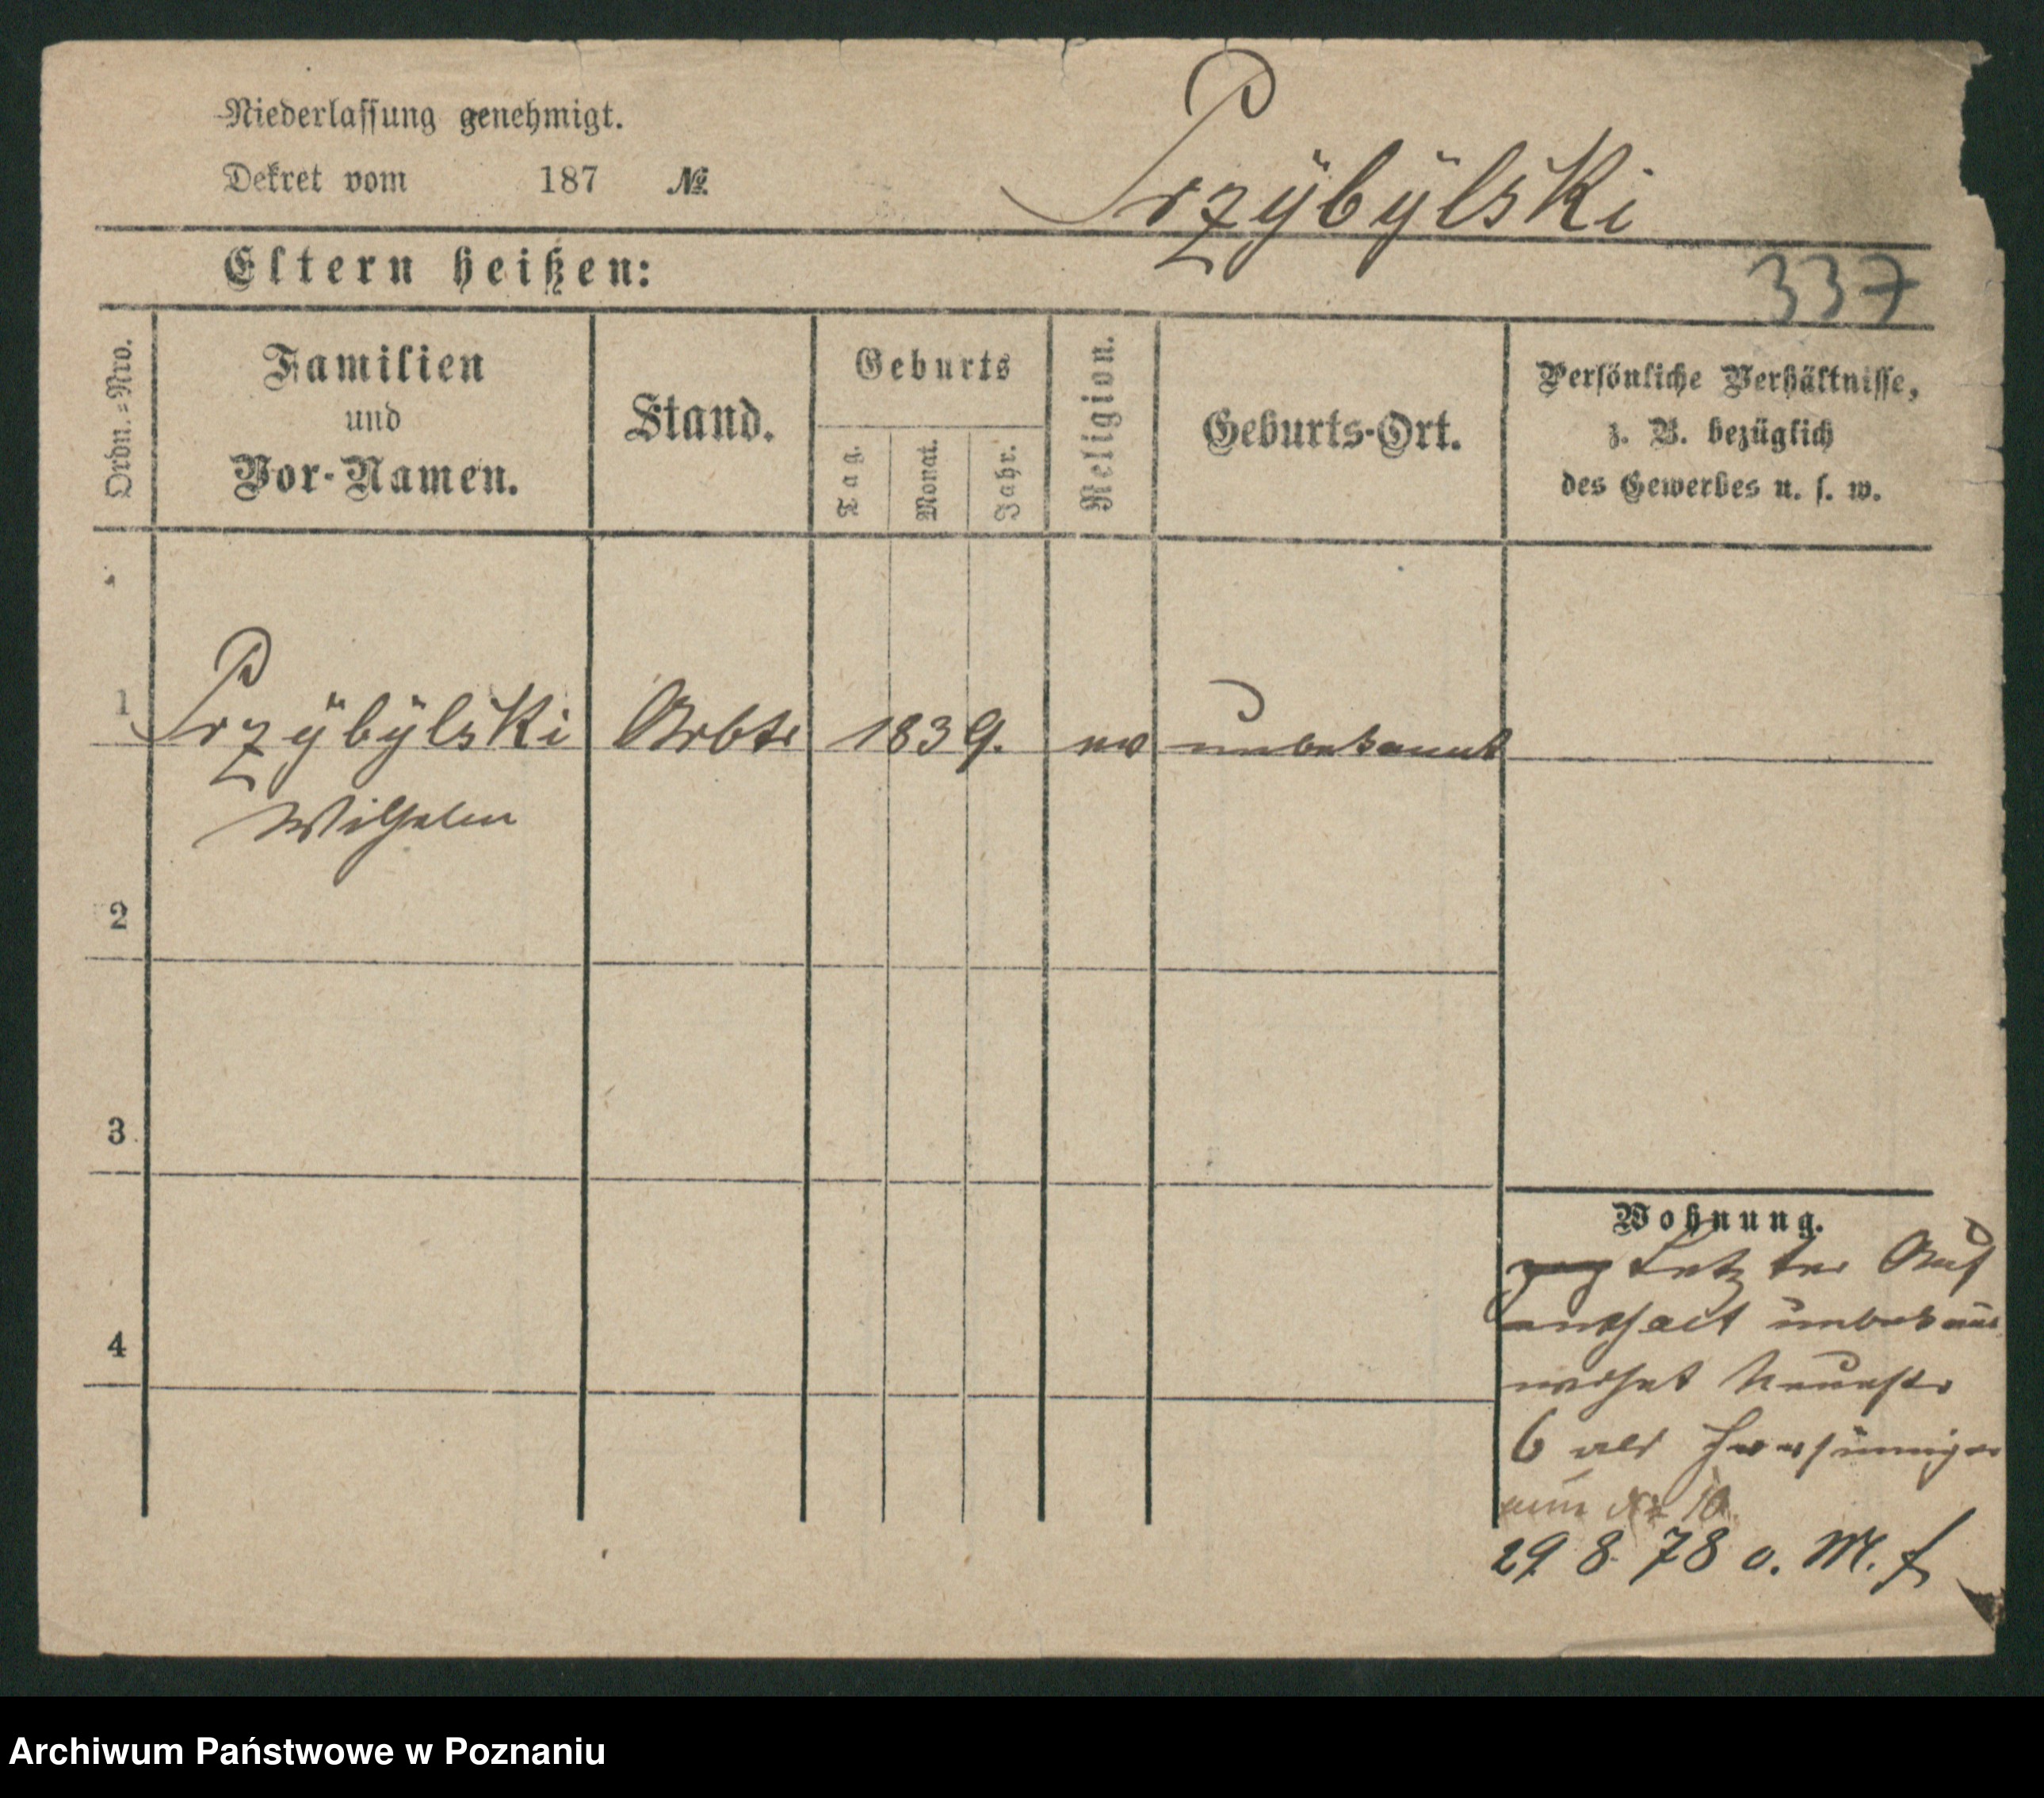 Niederlassung genehmigt.
Dekret vom 187 №
Przÿbÿlski
Eltern heißen:
337
Ordn.-Nro.
Familien
und
Vor-Namen.
Stand.
Geburts
Tag.
Monat.
Jahr.
Religion.
Geburts-Ort.
Persönliche Verhältnisse,
z. B. bezüglich
des Gewerbes u. s. w.
1
Przÿbÿlski Arbtr 1839. ev unbekannt
Wilhelm
2
3
4
Wohnung.
Letzter Auf
enthalt unbekannt
wohnt
6 als
nun № 10.
29 8. 78 o. M. f
Archiwum Państwowe w Poznaniu